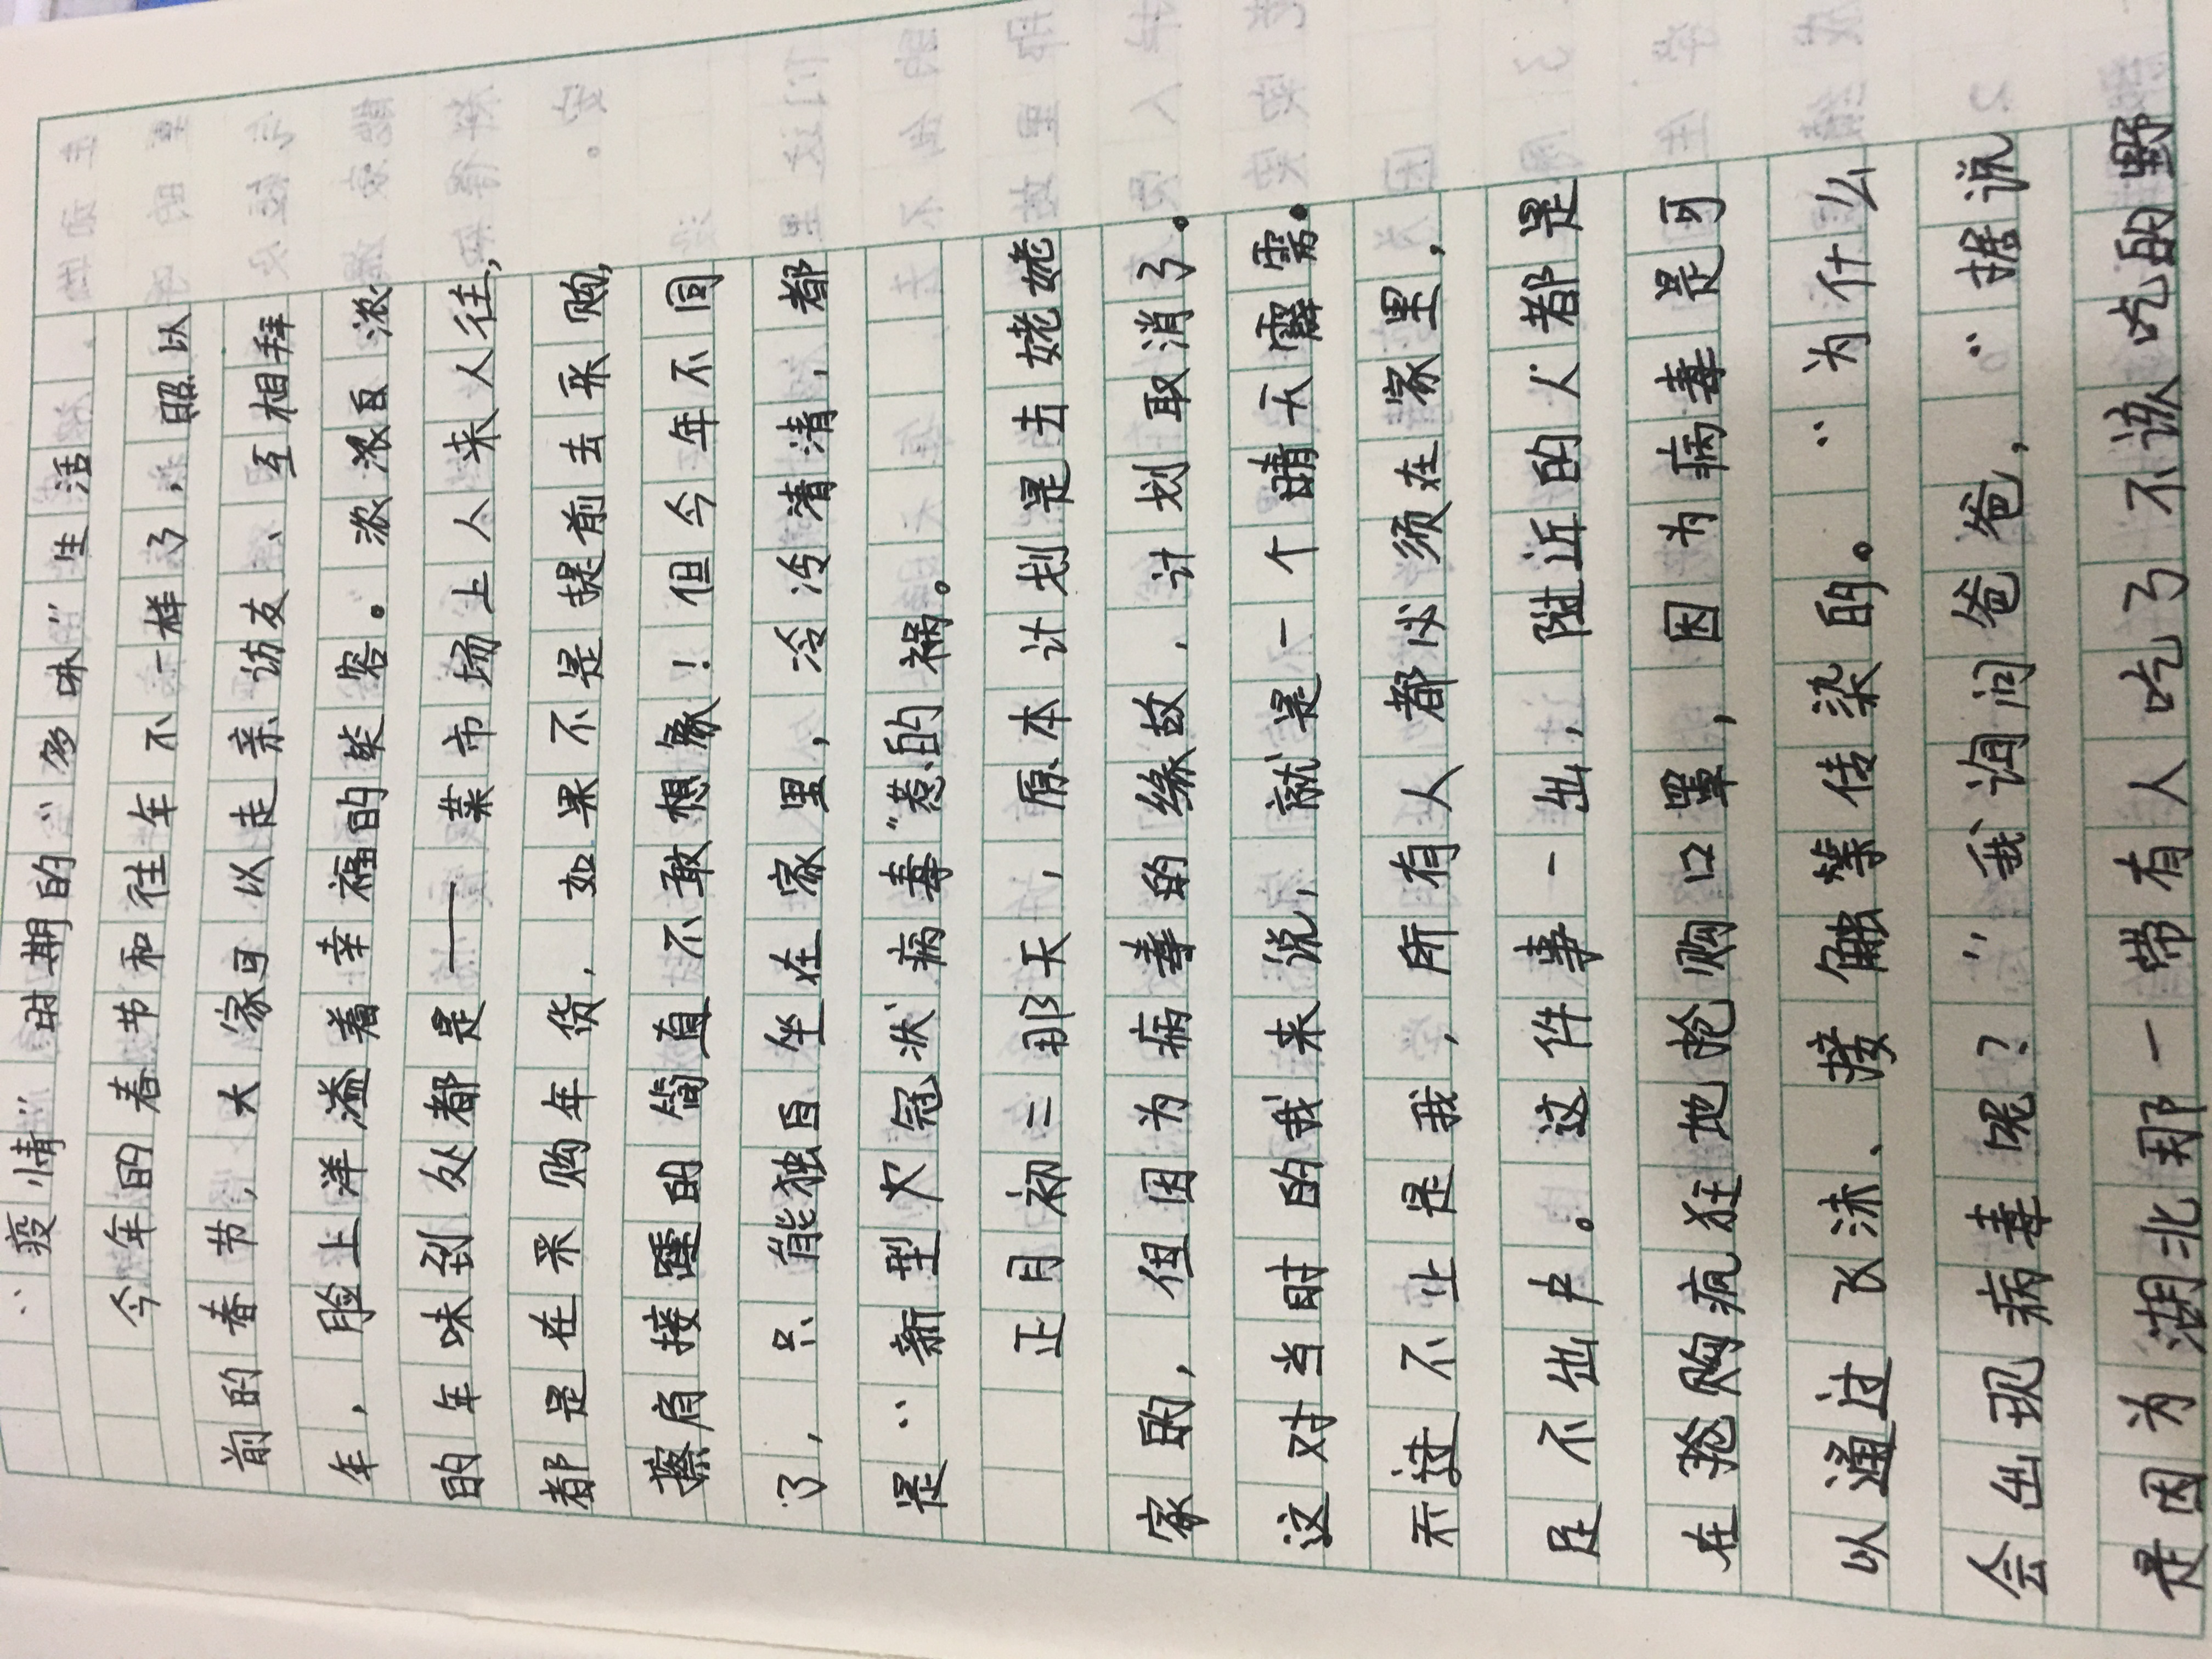 “疫情”时期的“多味”生活
今年的春节和往年不一样了，照以
前的春节，大家可以走亲访友、互相拜
年，脸上洋溢着幸福的笑容。浓浓自浓
的年味到处都是——菜市场上人来人往，
都是在采购年货，如果不是提前去采购，
擦肩接踵的简直不敢想象！但今年不同
了，只能独自坐在家里，冷冷清清，都
是“新型欠冠状病毒”惹的祸。
正月初二那天，原本计划是去姥姥
家的，但因为病毒的缘故，计划取消了。
这对当时的我来说，就是一个晴天霹雳。
不过不止是我，所有人都必须在家里，
足不出户。这件事一出，附近的人都是
在抢购疯狂地抢购口罩，因为病毒是可
以通过飞沫、接触等传染的。“为什么
会出现病毒呢？”我询问爸爸，“据说
是因为湖北那一带有人吃了不该吃的野